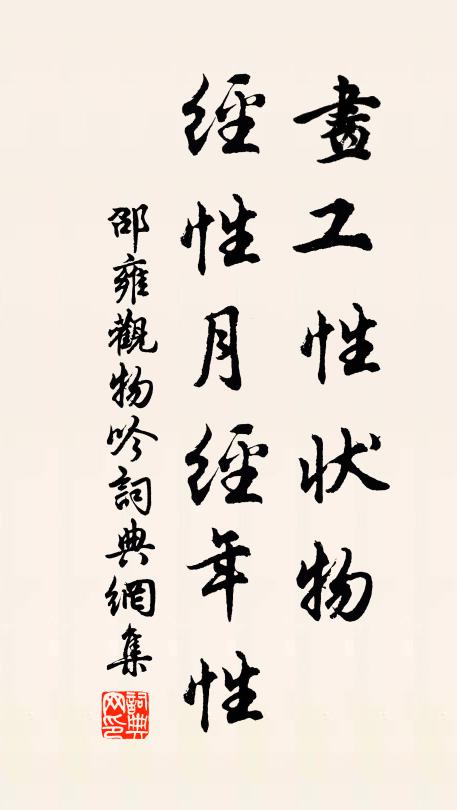 畫工性状物
經性月經年性
邵雍觀物吟詞典網集
詞典网印